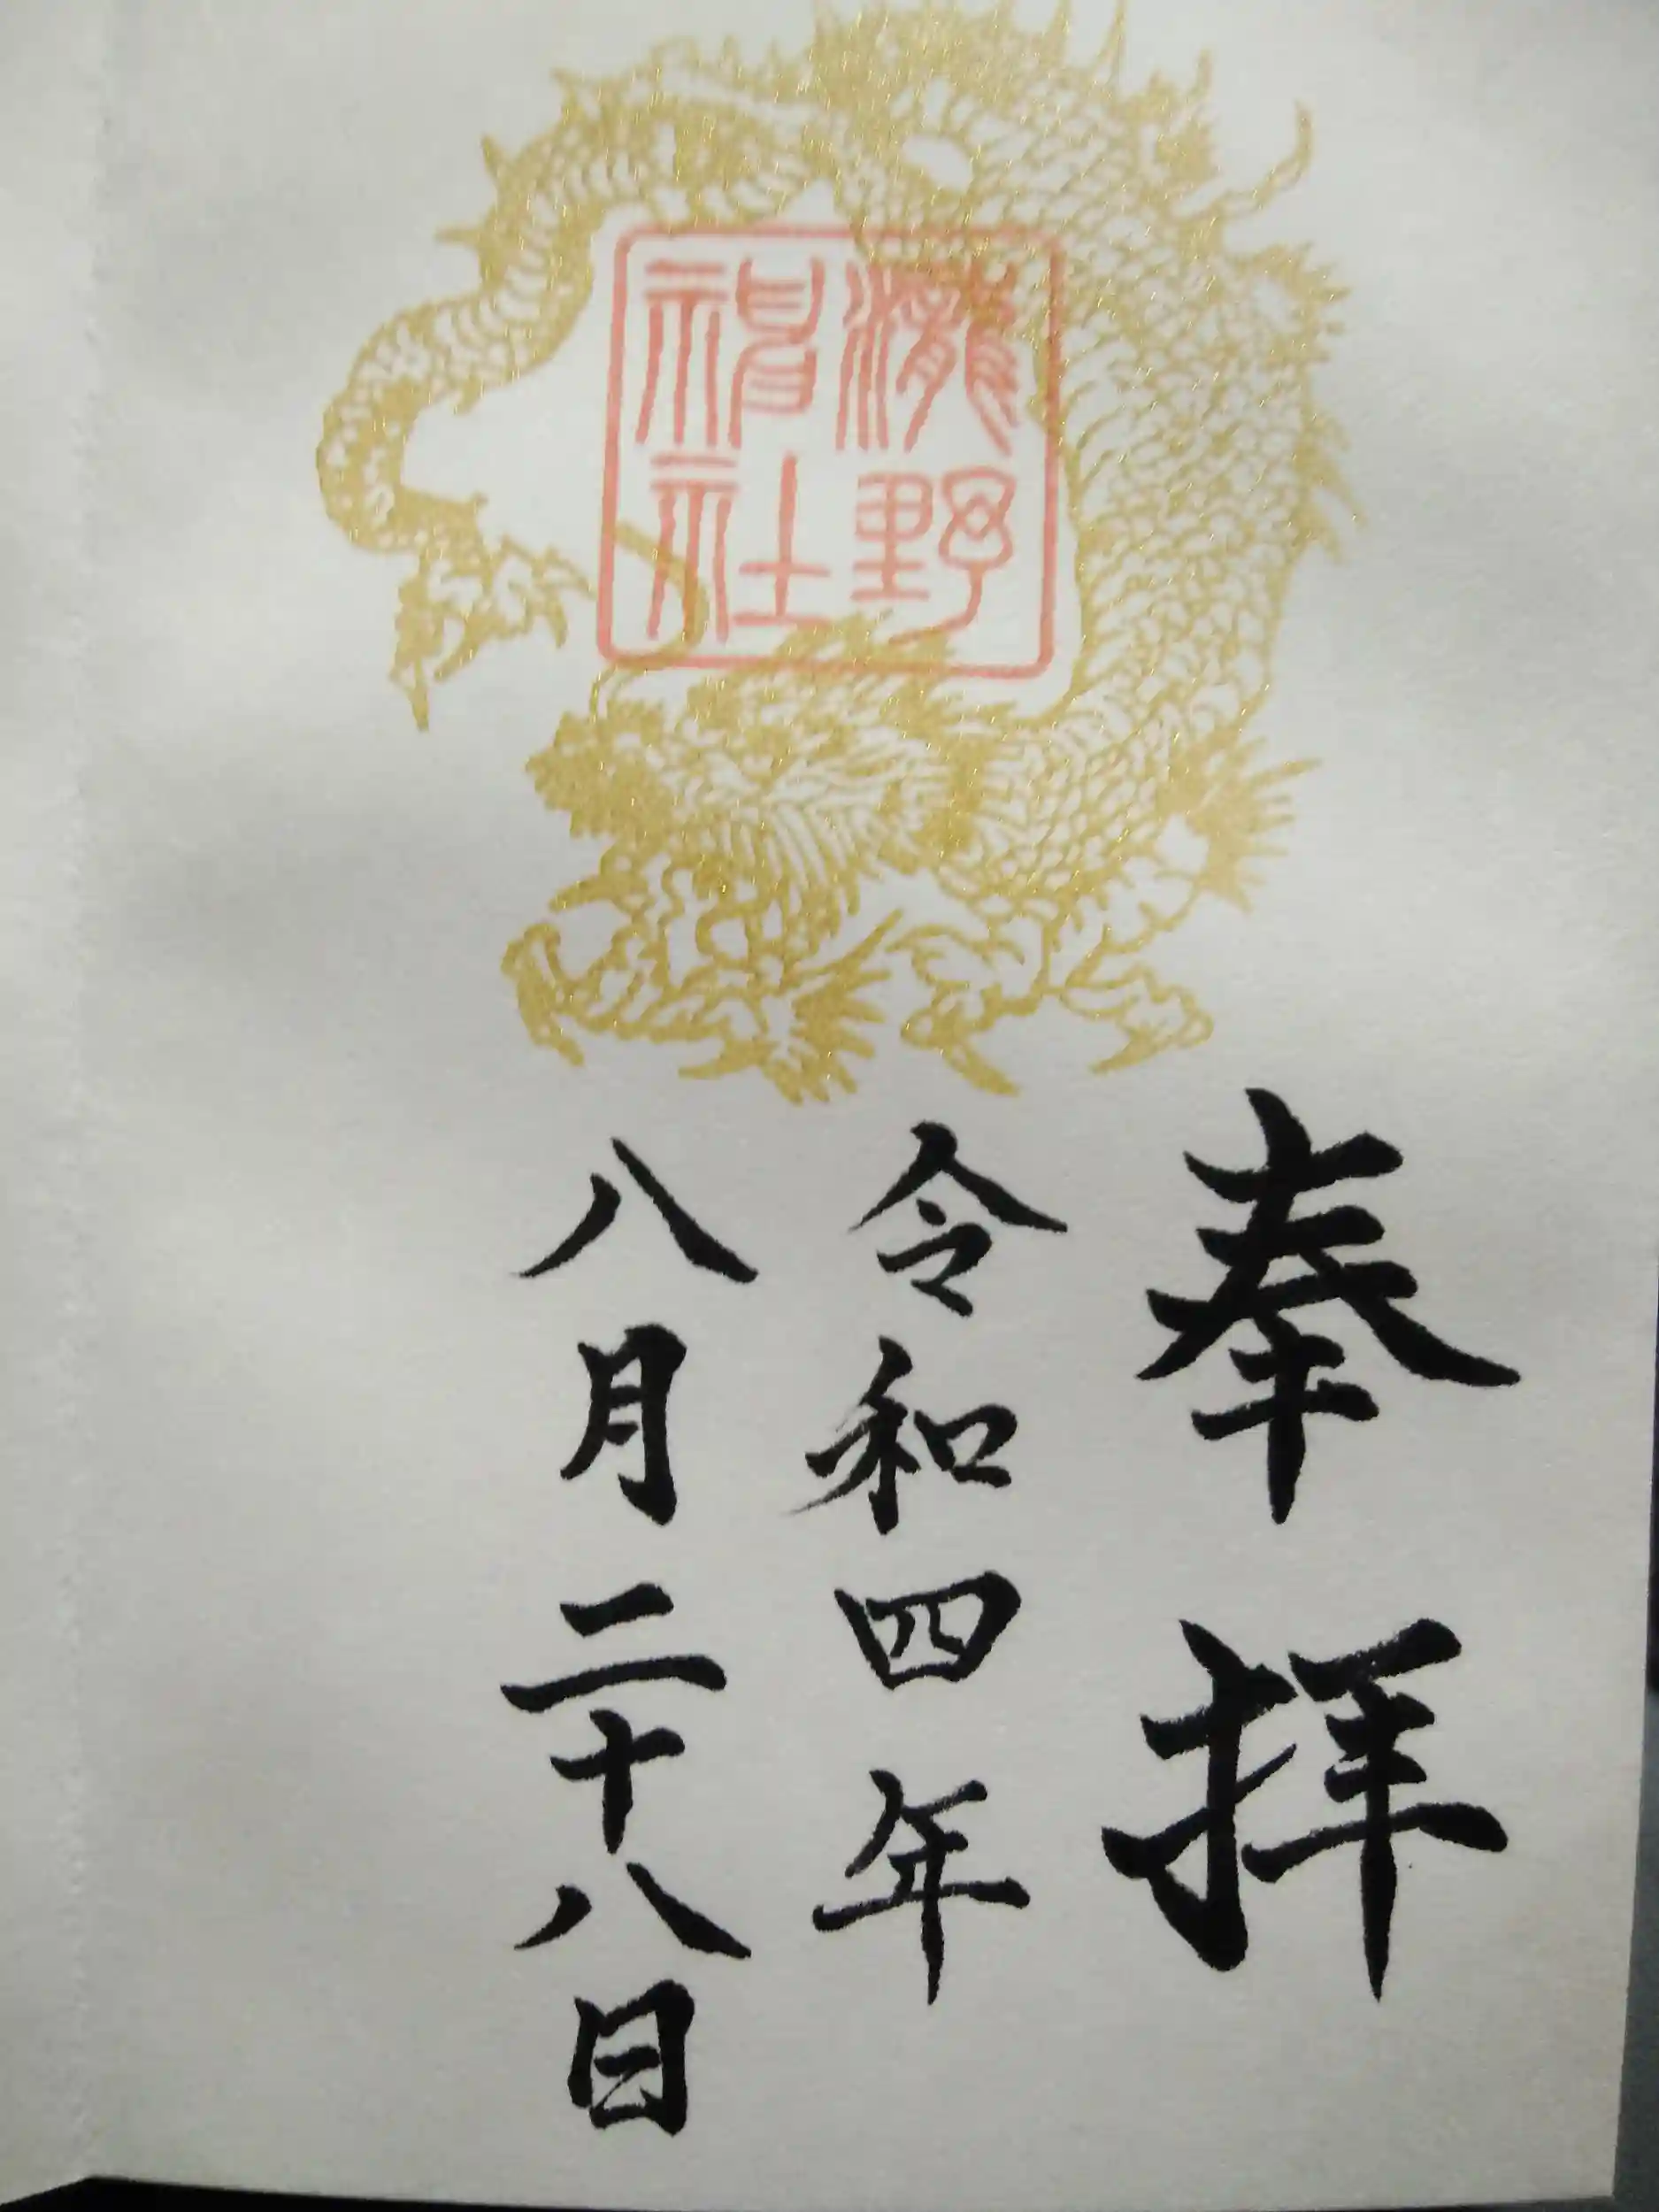 瀧野
神社
奉拝
令和四年
八月二十八日